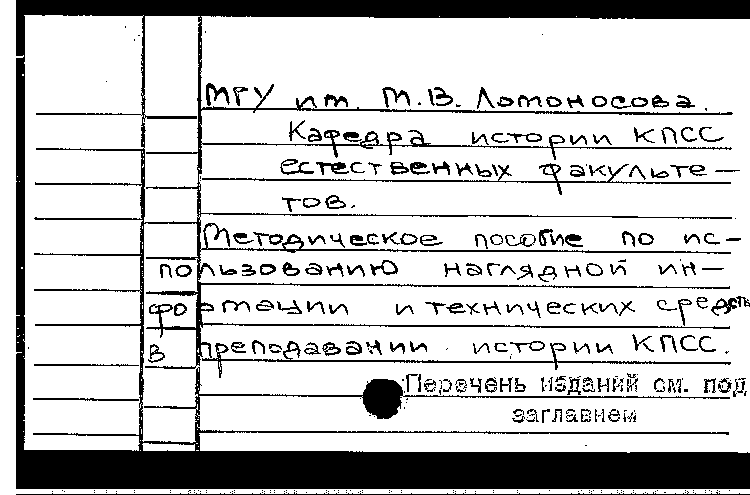 МГУ им. М.В. Ломоносова.
Кафедра истории КПСС
естественных факульте-
тов.
Методическое пособие по ис-
пользованию наглядной ин-
формации и технических средств
в преподавании истории КПСС.
Перечень изданий см. под
заглавием